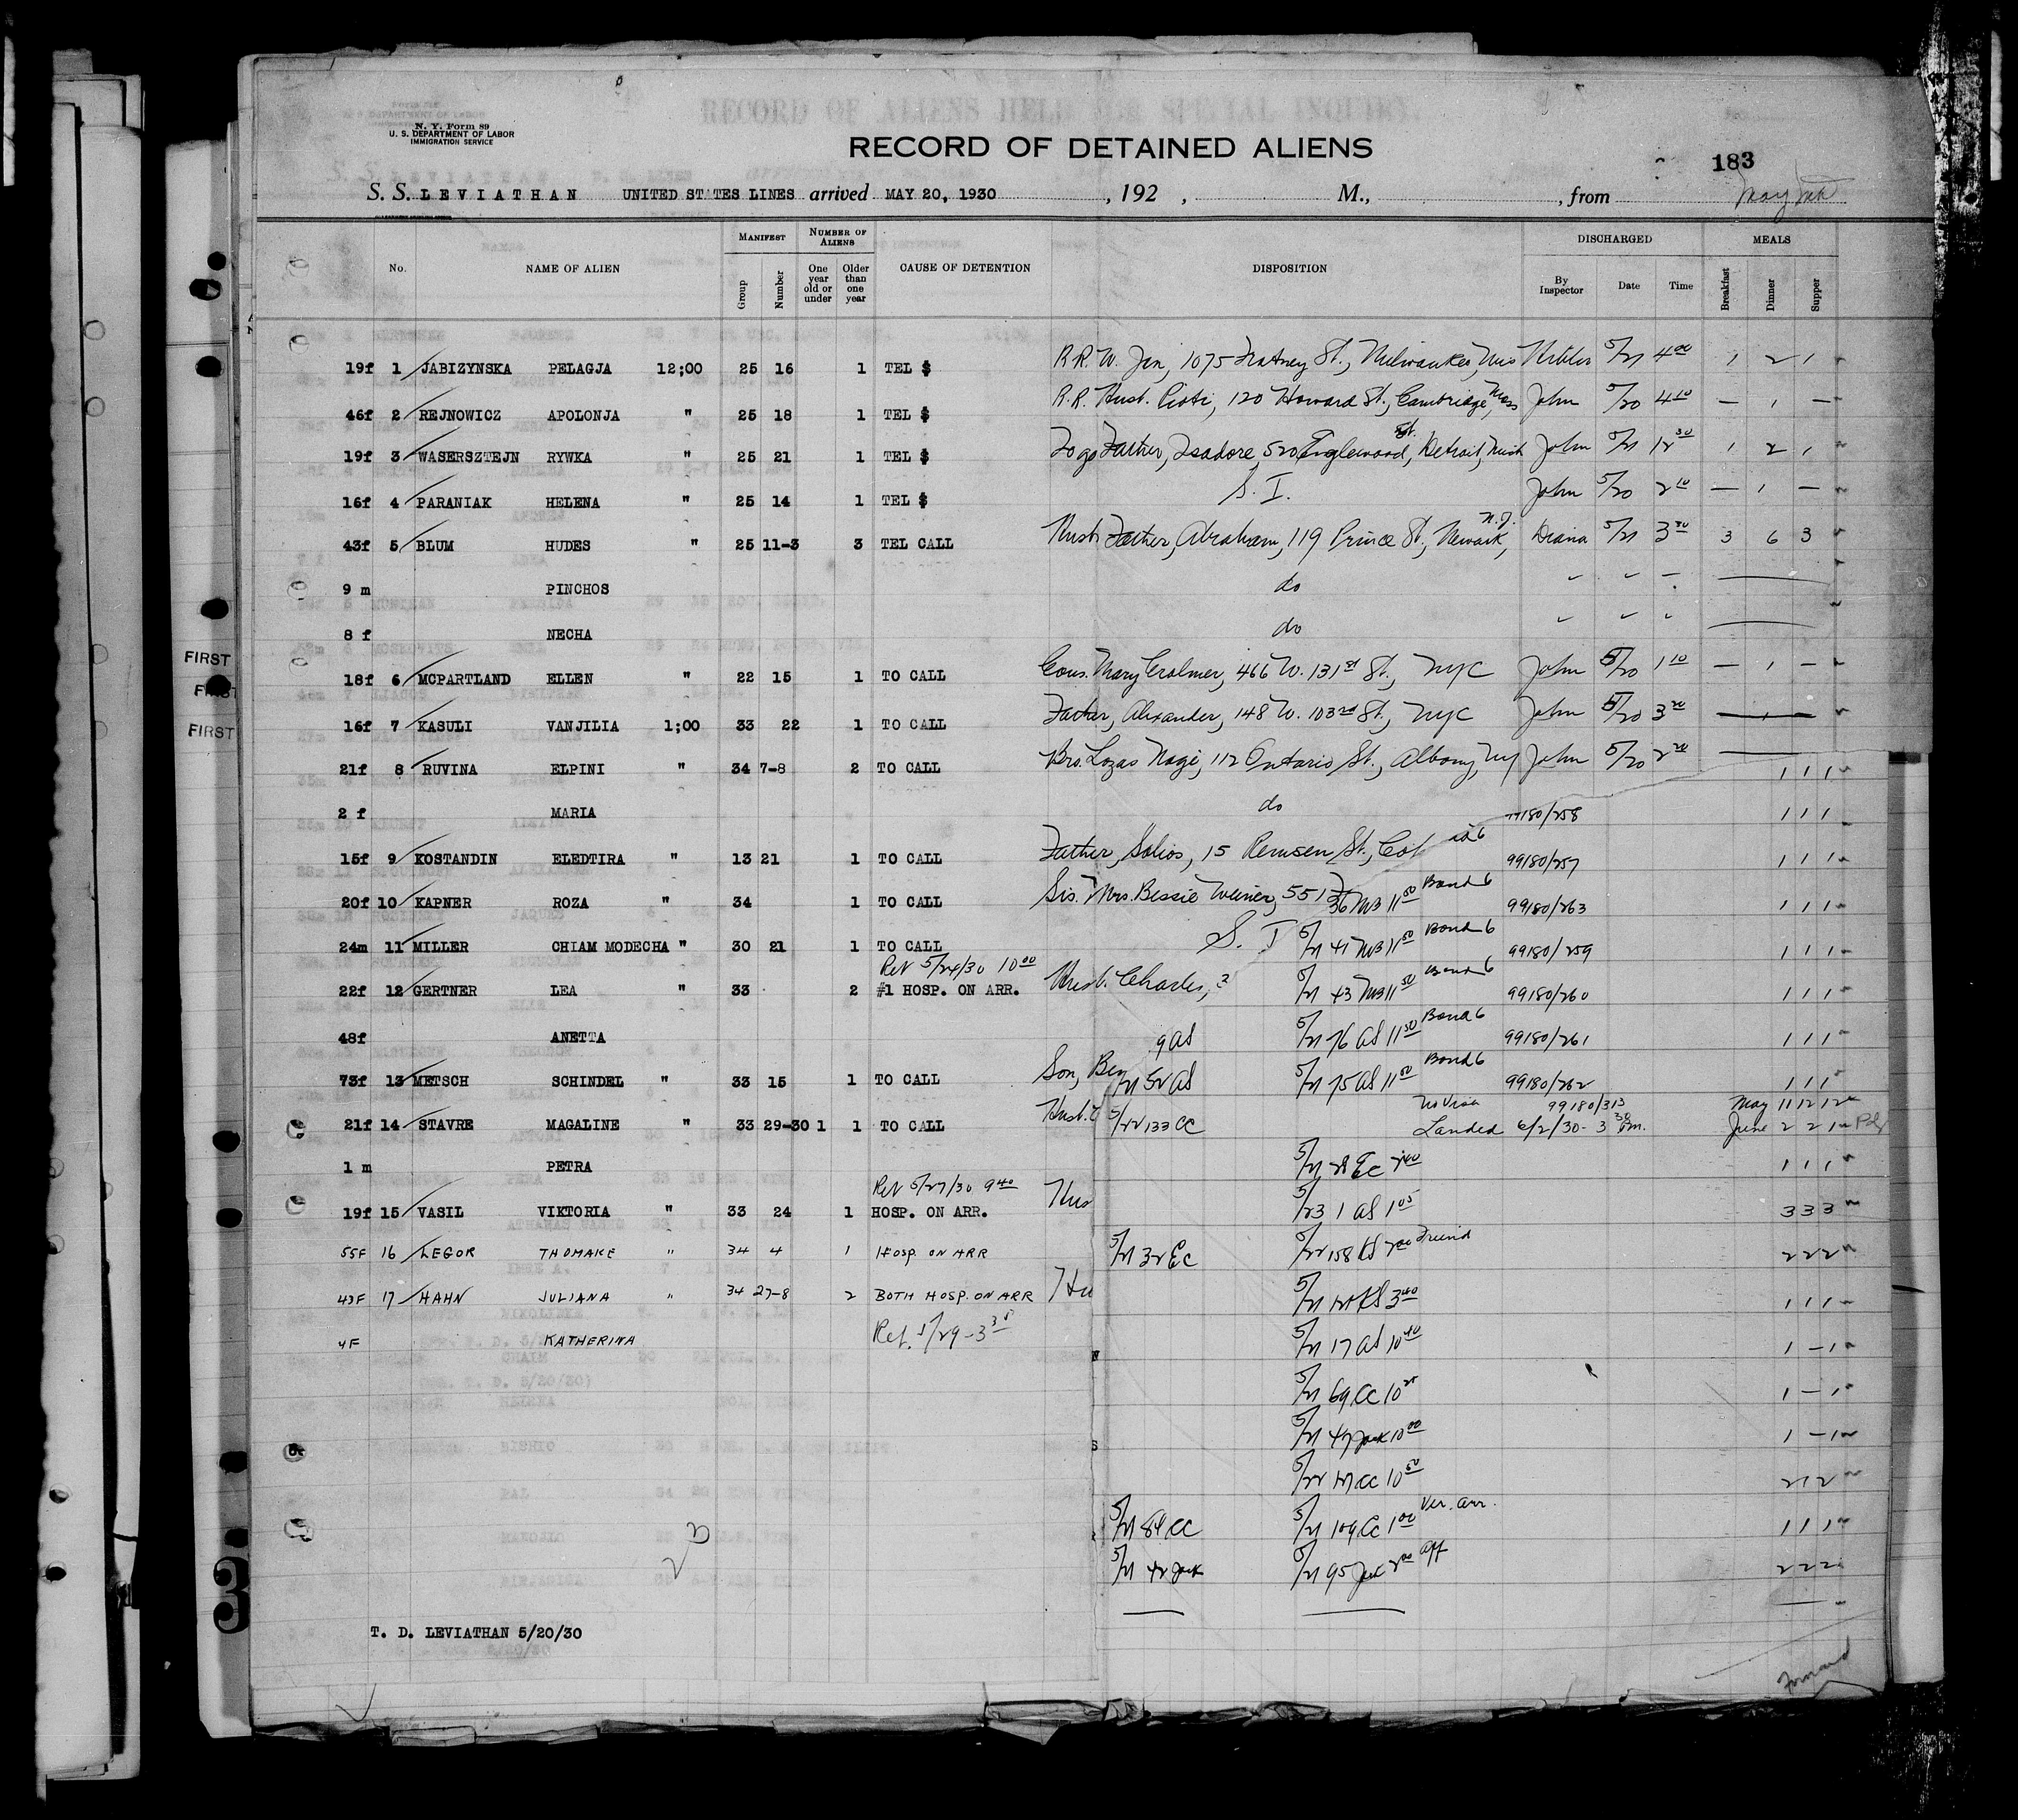 N. Y. Form 89
U. S. DEPARTMENT OF LABOR
IMMIGRATION SERVICE
RECORD OF ALIENS HELD FOR SPECIAL INQUIRY.
RECORD OF DETAINED ALIENS
183
S. S. LEVIATHAN UNITED STATES LINES arrived MAY 20, 1930, 192 , M., , from
No. NAME OF ALIEN MANIFEST Group Number NUMBER OF ALIENS One year old or under Older than one year CAUSE OF DETENTION DISPOSITION DISCHARGED By Inspector Date Time MEALS Breakfast Dinner Supper
19f 1 JABIZYNSKA PELAGJA 12;00 25 16 1 TEL $ R.R. W. Jan, 1075 St., Milwaukee, Wis 5/21 4 00 1 2 1
46f 2 REJNOWICZ APOLONJA " 25 18 1 TEL $ R.R. Husb. Piotr, 120 Howard St., Cambridge, Mass John 5/20 4 10 — 1 —
19f 3 WASERSZTEJN RYWKA " 25 21 1 TEL $ Togo Father, Isadore, 520 Englewood St., Detroit, Mich John 5/21 12 30 1 2 1
16f 4 PARANIAK HELENA " 25 14 1 TEL $ S. I. John 5/20 2 10 — 1 —
43f 5 BLUM HUDES " 25 11-3 3 TEL CALL Husb Father, Abraham, 119 Prince St., Newark, N.J. Diana 5/21 3 30 3 6 3
9 m PINCHOS do
8 f NECHA do
FIRST
18f 6 MCPARTLAND ELLEN " 22 15 1 TO CALL Cous. Mary Crolmer, 466 W. 131st St., NYC John 5/20 1 10 — 1 —
FIRST
16f 7 KASULI VANJILIA 1;00 33 22 1 TO CALL Father, Alexander, 148 W. 103rd St., NYC John 5/20 3 20
FIRST
21f 8 RUVINA ELPINI " 34 7-8 2 TO CALL Bro. Lozas Nagi, 112 Ontario St., Albany, NY John 5/20 2 20
1 1 1
2 f MARIA do 99180/258 1 1 1
15f 9 KOSTANDIN ELEDTIRA " 13 21 1 TO CALL Father, Solios, 15 Remsen St., 99180/257 1 1 1
20f 10 KAPNER ROZA " 34 1 TO CALL Sis. Mrs. Bessie Weiner, 551 36 MB 11 50 Bond 6 99180/263 1 1 1
24m 11 MILLER CHIAM MODECHA " 30 21 1 TO CALL S. I 5/21 41 MB 11 50 Bond 6 99180/259 1 1 1
Ret 5/24/30 10 00
22f 12 GERTNER LEA " 33 2 #1 HOSP. ON ARR. Husb. Charles, 5/21 43 MB 11 50 Bond 6 99180/260 1 1 1
48f ANETTA 9 AS 5/21 76 AS 11 50 Bond 6 99180/261 1 1 1
73f 13 METSCH SCHINDEL " 33 15 1 TO CALL Son, Ben 5/21 52 AS 5/21 75 AS 11 50 Bond 6 99180/262 1 1 1
21f 14 STAVRE MAGALINE " 33 29-30 1 1 TO CALL Husb. 5/22 133 CC No Visa 99180/313 May 11 12 12
Landed 6/2/30 - 3 30 Pm. June 2 2 1
1 m PETRA 5/21 28 EC 1 1 1
Ret 5/27/30 9 40
19f 15 VASIL VIKTORIA " 33 24 1 HOSP. ON ARR. Hus 5/23 1 AS 1 05 3 3 3
55F 16 LEGOR THOMAKE " 34 4 1 HOSP. ON ARR 5/21 32 EC 5/22 158 KS Friend 2 2 2
43F 17 HAHN JULIANA " 34 27-8 2 BOTH HOSP. ON ARR Hu 5/21 121 KS 3 40 1 1 1
4F KATHERINA Ret. 5/29 - 3 35 5/21 17 AS 10 40 1 - 1
5/21 69 CC 10 25 1 - 1
5/21 47 Jack 10 00 1 - 1
5/22 121 CC 10 50 2 1 2
5/21 84 CC 5/21 104 CC 1 00 Ver. arr. 1 1 1
5/21 42 Jack 5/21 95 Jack 2 00 aff 2 2 2
T. D. LEVIATHAN 5/20/30
Forward